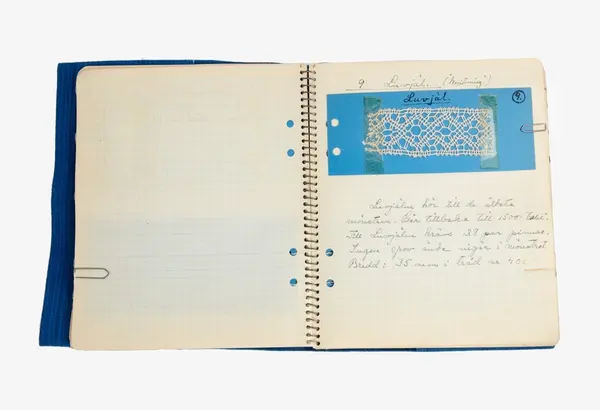 9 Luvjål. (knörring)
Luvjål. 9.
Luvjålne hör till de älsta
mönstren. Går tillbaka till 1500 talet.
Till Luvjålne kräves 138 par pinnar.
Ingen grov ände ingår i mönstret
Bredd: 35 mm i tråd nr 40.